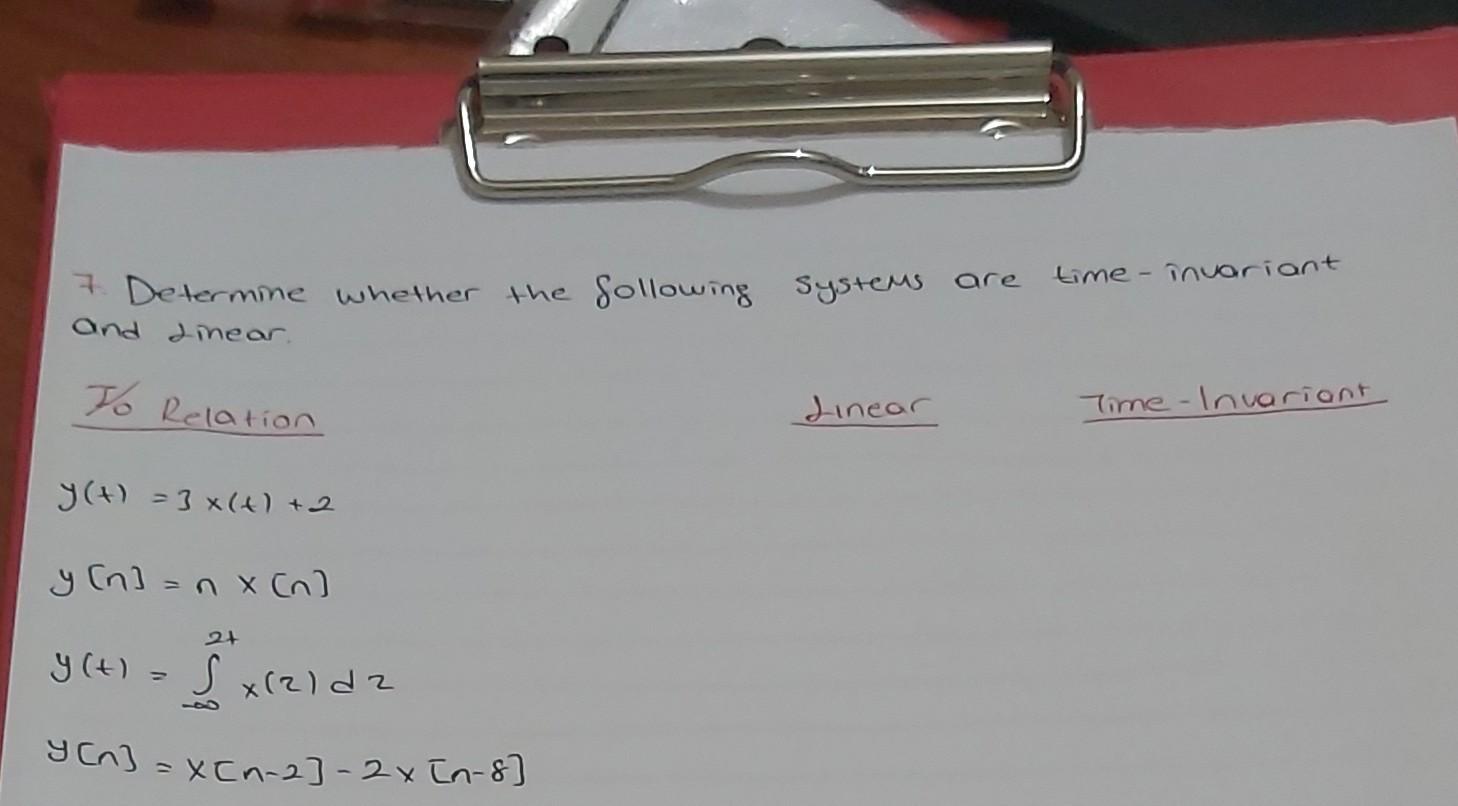 7. Determine whether the following systems are time-invariant
and Linear.
I/o Relation Linear Time-Invariant
y(t) = 3x(t) +2
y[n] = n x[n]
y(t) = ∫_{-∞}^{2t} x(z) dz
y[n] = x[n-2] - 2x[n-8]